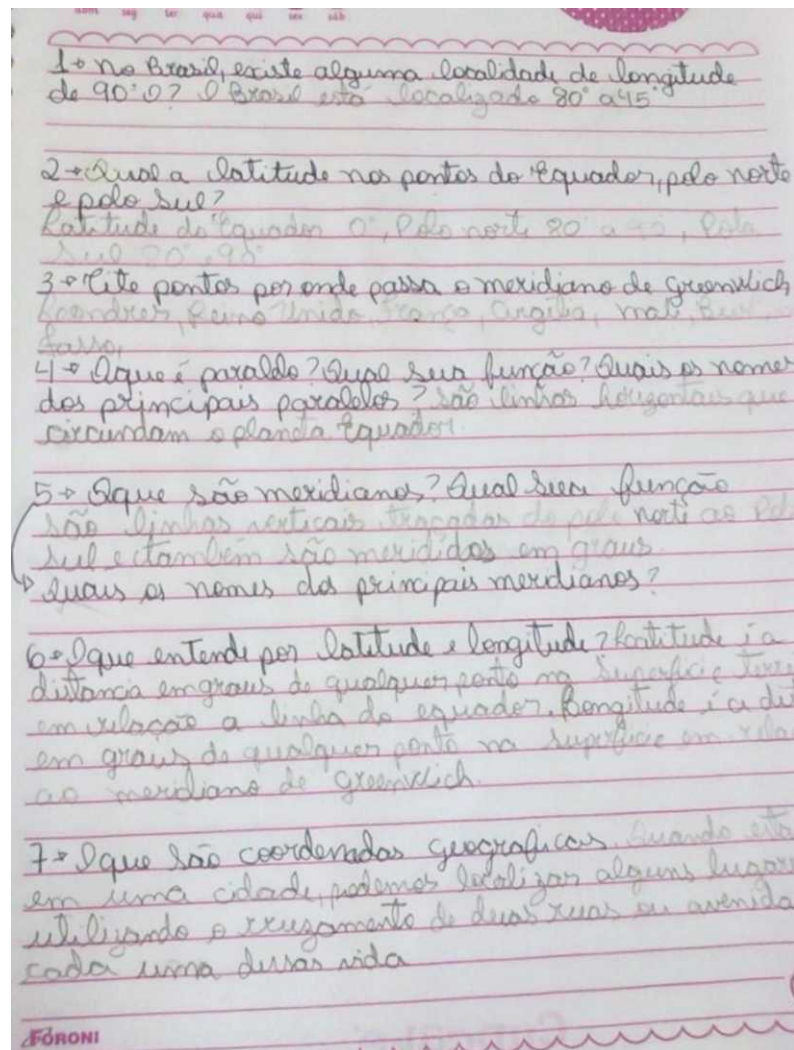 dom seg ter qua qui sex sáb
1→ no Brasil, existe alguma localidade de longitude
de 90° O? O Brasil está localizado 80° a 45°
2→ Qual a latitude nos pontos do Equador, polo norte
e polo sul?
Latitude do Equador 0°, Polo norte 20° a 90, Polo
Sul 90°
3→ Cite pontos por onde passa o meridiano de greenwich
Reino Unido, França, mali,
fasso,
4→ Oque é paralelo? Qual sua função? Quais os nomes
dos principais paralelos? são linhas horizontais que
circundam o planeta Equador.
5→ Oque são meridianos? Qual sua função
são linhas verticais traçadas do polo norti ao
sul e também são meridos em graus
Quais os nomes dos principais meridianos?
6→ Oque entende por latitude e longitude? latitude é a
distancia em graus de qualquer ponto na superficie
em relação a linha do equador. Longitude é a
em graus de qualquer ponto na superficie em
ao meridiano de greenwich.
7→ Oque são coordenadas geograficas. Quando
em uma cidade, podemos localizar alguns
utilizando o cruzamento de duas ruas ou
cada uma dessas vida
FORONI